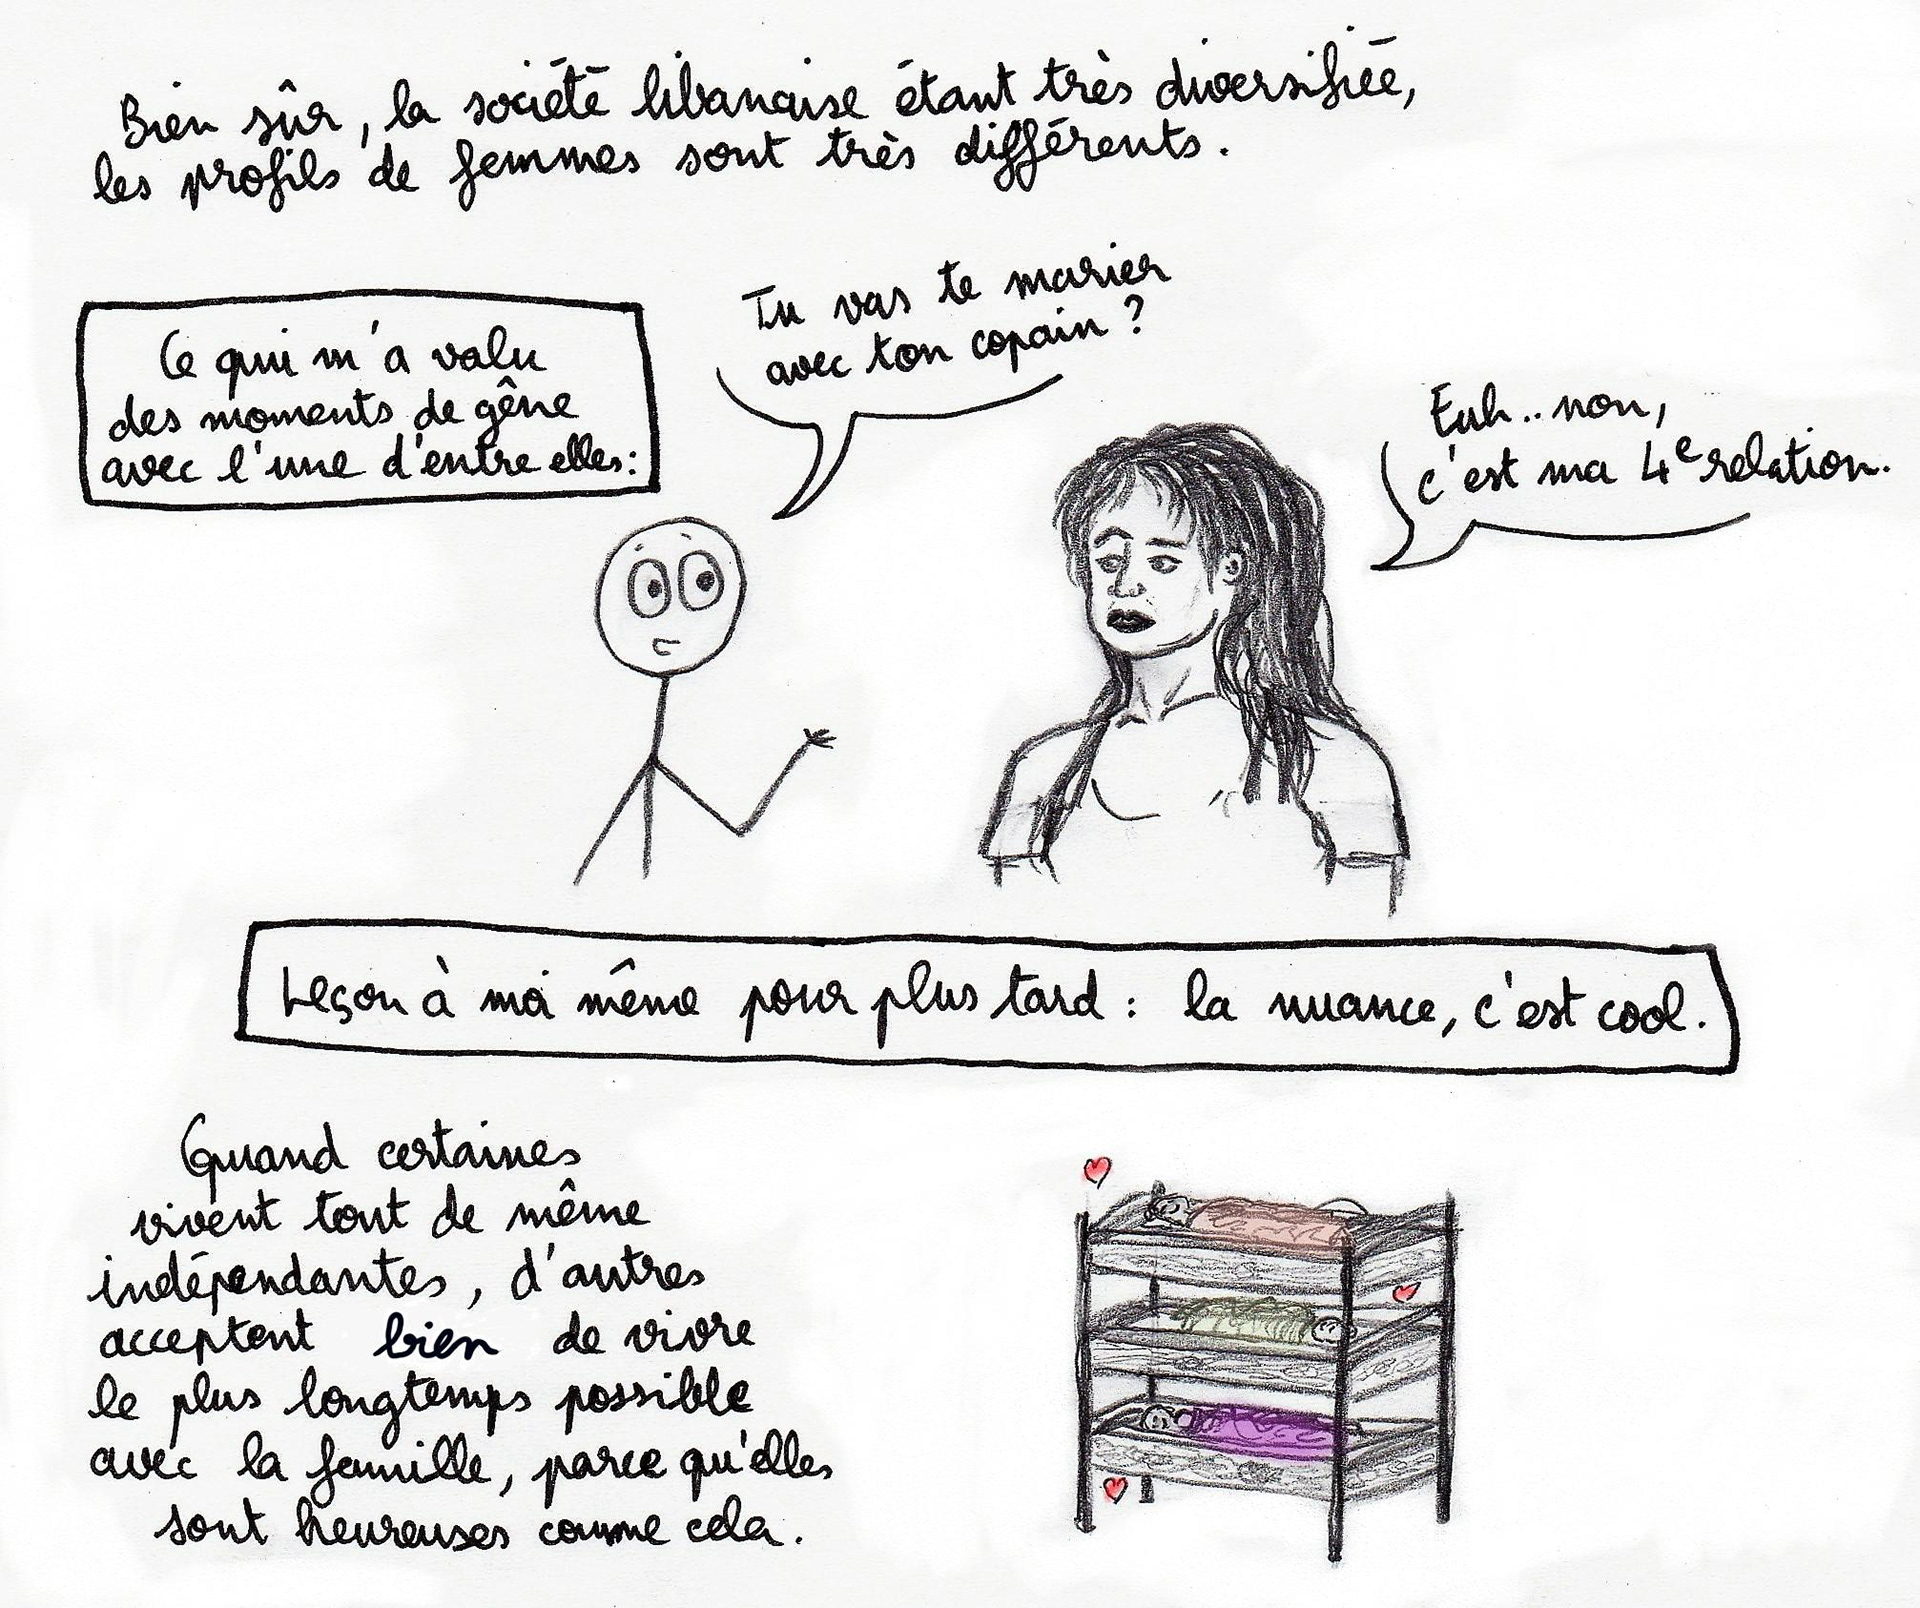 Bien sûr, la société libanaise étant très diversifiée,
les profils de femmes sont très différents.
Ce qui m'a valu
des moments de gêne
avec l'une d'entre elles:
Tu vas te marier
avec ton copain ?
Euh.. non,
c'est ma 4e relation.
Leçon à moi même pour plus tard : la nuance, c'est cool.
Quand certaines
vivent tout de même
indépendantes, d'autres
acceptent bien de vivre
le plus longtemps possible
avec la famille, parce qu'elles
sont heureuses comme cela.